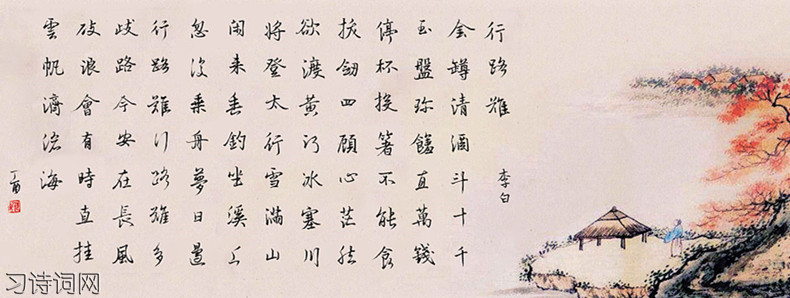 行路難
李白
金罇清酒斗十千
玉盤珎饈直萬錢
停杯投箸不能食
拔劒四顧心茫然
欲渡黃河冰塞川
將登太行雪滿山
閑来垂釣坐溪上
忽復乘舟夢日邊
行路難行路難多
歧路今安在長風
破浪會有時直挂
雲帆濟滄海
丁酉
习诗词网